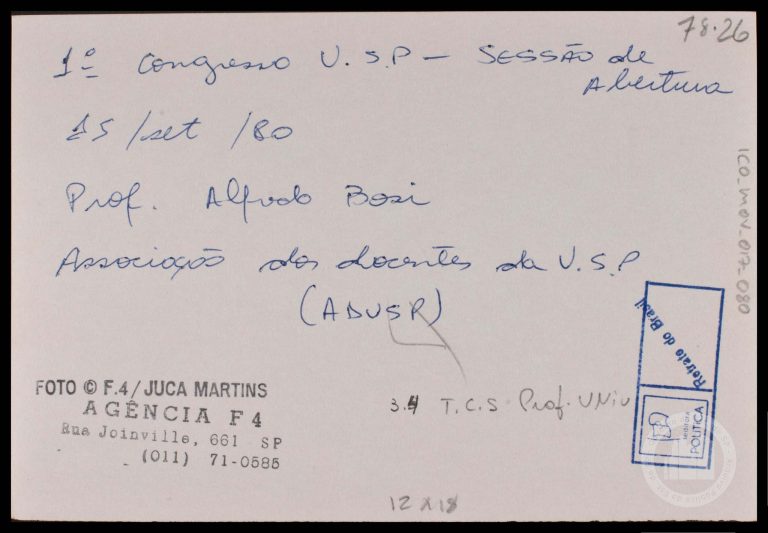 78.26
1º Congresso U.S.P — SESSÃO de
Abertura
15/set/80
Prof. Alfredo Bosi
Associação dos docentes da U.S.P
(ADUSP)
ICO_MOV_017_080
Retrato do Brasil
MEMÓRIA
POLÍTICA
FOTO © F.4/JUCA MARTINS
AGÊNCIA F4
Rua Joinville, 661 SP
(011) 71-0585
3.4 T.C.S Prof. UNiv
12 x 18